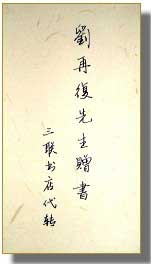 劉再復先生贈書
三联书店代转